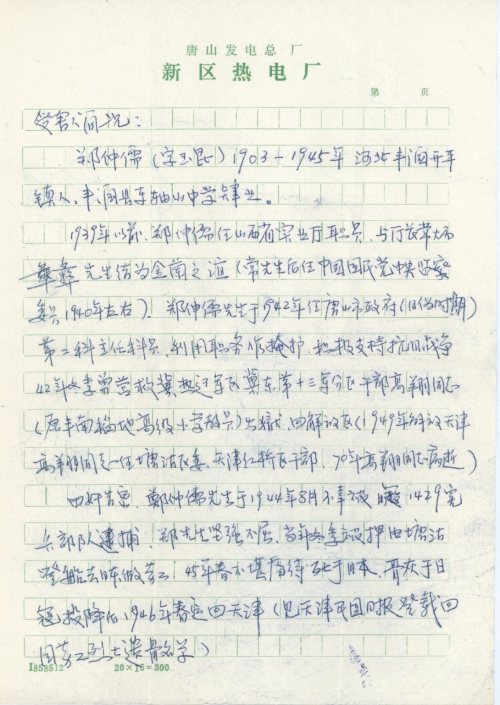 唐山发电总厂
新区热电厂
第 页
受害人简况：
郑仲儒（字玉昆）1903－1945年 河北丰润开平
镇人，丰润县车轴山中学肄业。
1939年以前，郑仲儒任山西省实业厅职员，与厅长常炳
彝彝先生结为金兰之谊（常先生后任中国国民党中央监察
委员1940年左右）。郑仲儒先生于1942年任唐山市政府（日伪时期）
第二科主任科员，利用职务作掩护，积极支持抗日战争
42年冬季曾营救冀热辽军区冀东第十三军分区干部高翔同志
（原丰南稻地高级小学教员）出狱，回解放区（1949年解放天津
高翔同志一任塘沽区委、天津红桥区干部，70年高翔同志病逝）
因奸告密，郑仲儒先生于1944年8月不幸被 1429宪
兵部队逮捕，郑先生坚强不屈，当年冬季被押由塘沽
登船去日本做劳工，45年春不堪虐待死于日本，骨灰于日
寇投降后1946年春运回天津（见天津民国日报登载回
国劳工烈士遗骸名单）
1858512
20×15=300